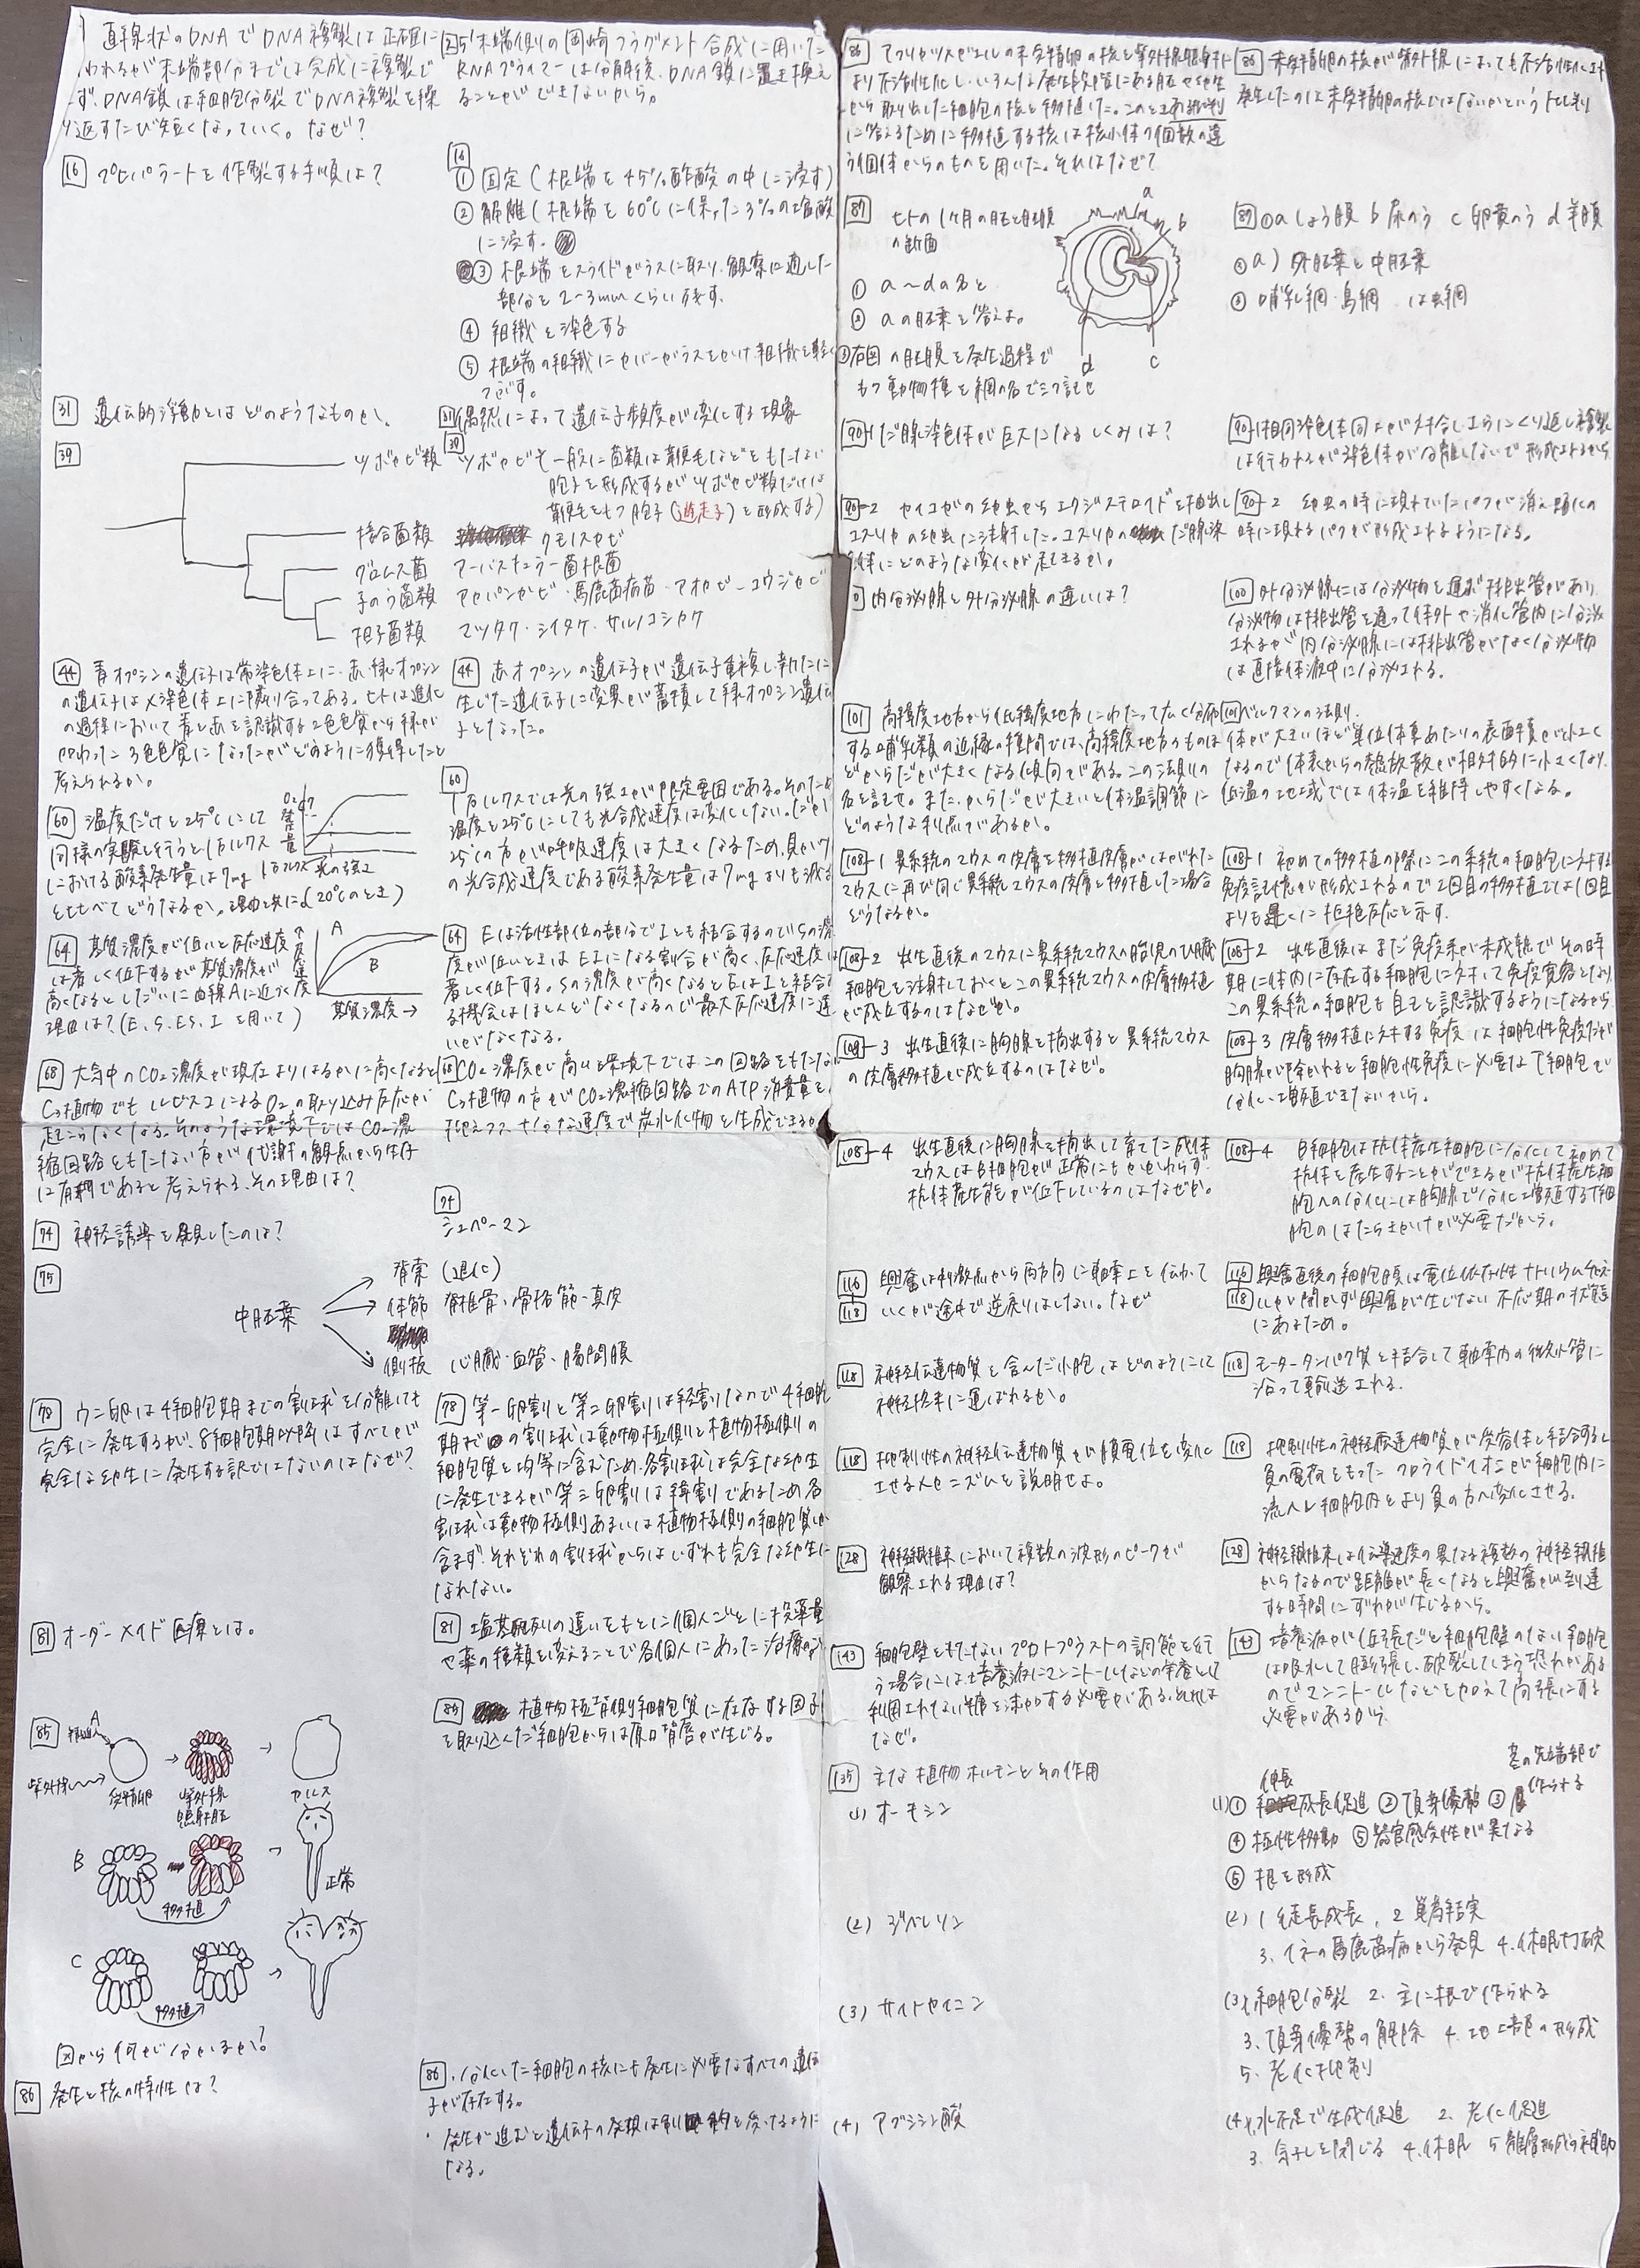 直線状のDNAでDNA複製は正確に
われるが末端部分までは完成に複製で
ず、DNA鎖は細胞分裂でDNA複製を繰
り返すたび短くなっていく。なぜ?
2 5'末端側の岡崎フラグメント合成に用いた
RNAプライマーは分解後、DNA鎖に置き換え
ることができないから。
16 プレパラートを作製する手順は?
16
① 固定(根端を45%酢酸の中に浸す)
② 解離(根端を60℃に保った3%の塩酸
に浸す。
③ 根端をスライドガラスに取り、観察に適した
部分を2~3mmくらい残す。
④ 組織を染色する
⑤ 根端の組織にカバーガラスをかけ組織を軽く
つぶす。
31 遺伝的浮動とはどのようなものか、
31 偶然によって遺伝子頻度が変化する現象
39
ツボカビ類
接合菌類
グロムス菌
子のう菌類
担子菌類
39 ツボカビ
一般に菌類は鞭毛などをもたない
胞子を形成するがツボカビ類だけは
鞭毛をもつ胞子(遊走子)を形成する)
クモノスカビ
アーバスキュラー菌根菌
アカパンカビ・馬鹿苗病菌・アオカビ・コウジカビ
マツタケ・シイタケ・サルノコシカケ
44 青オプシンの遺伝子は常染色体上に、赤・緑オプシン
の遺伝子はX染色体上に隣り合ってある。ヒトは進化
の過程において青と赤を認識する2色色覚から緑が
加わった3色色覚になったがどのように獲得したと
考えられるか。
44 赤オプシンの遺伝子が遺伝子重複し新たに
生じた遺伝子に変異が蓄積して緑オプシン遺伝
子となった。
60 温度だけを25℃にして
同様の実験を行うと1万ルクス
における酸素発生量は7mg
とくらべてどうなるか。理由と共に(20℃のとき)
O₂発生量
7
1万ルクス 光の強さ
60
1万ルクスでは光の強さが限定要因である。そのため
温度を25℃にしても光合成速度は変化しない。だが
25℃の方が呼吸速度は大きくなるため、見かけ
の光合成速度である酸素発生量は7mgよりも減る
64 基質濃度が低いと反応速度
は著しく低下するが基質濃度が
高くなるとしだいに曲線Aに近づく
理由は?(E、S、ES、Iを用いて)
反応速度
A
B
基質濃度→
64 Eは活性部位の部分でIとも結合するのでSの濃
度が低いときはEIになる割合が高く、反応速度は
著しく低下する。Sの濃度が高くなるとEはIと結合す
る機会はほとんどなくなるので最大反応速度に違
いがなくなる。
68 大気中のCO₂濃度が現在よりはるかに高くなると
C₃植物でもルビスコによるO₂の取り込み反応が
起こらなくなる。そのような環境下ではCO₂濃
縮回路をもたない方が代謝の観点から生存
に有利であると考えられる、その理由は?
68 CO₂濃度が高い環境下ではこの回路をもたない
C₃植物の方がCO₂濃縮回路でのATP消費量を
抑えつつ、十分な速度で炭水化物を生成できる。
74 神経誘導を発見したのは?
74
シュペーマン
75
中胚葉
脊索(退化)
体節 脊椎骨・骨格筋・真皮
側板 心臓・血管・腸間膜
78 ウニ卵は4細胞期までの割球を分離しても
完全に発生するが、8細胞期以降はすべてが
完全な幼生に発生する訳ではないのはなぜ?
78 第一卵割と第二卵割は経割なので4細胞
期までの割球は動物極側と植物極側の
細胞質を均等に含むため、各割球は完全な幼生
に発生できるが第三卵割は緯割であるため各
割球は動物極側あるいは植物極側の細胞質しか
含まず、それぞれの割球からはいずれも完全な幼生に
なれない。
81 オーダーメイド医療とは。
81 塩基配列の違いをもとに個人ごとに投薬量
や薬の種類を変えることで各個人にあった治療
85
A
紫外線
受精卵
紫外線照射胚
カルス
B
移植
正常
C
移植
図から何が分かるか?
85 植物極背側細胞質に存在する因子
を取り込んだ細胞からは原口背唇が生じる。
86 発生と核の特性は?
86 ・分化した細胞の核にも発生に必要なすべての遺伝
子が存在する。
・発生が進むと遺伝子の発現は制約を受けるように
なる。
86 アフリカツメガエルの未受精卵の核を紫外線照射に
より不活性化し、いろんな発生段階にある胚や幼生
から取り出した細胞の核を移植した。このとき
に答えるために移植する核は核小体の個数の違
う個体からのものを用いた。それはなぜ?
86 未受精卵の核が紫外線によっても不活性化せず
発生したのは未受精卵の核ではないかという批判
87 ヒトの1ヶ月の胚と胚膜
の断面
① a~dの名と
② aの胚葉を答えよ。
③ 右図の胚膜を発生過程で
もつ動物種を綱の名で三つ記せ
a
b
c
d
87 ① a しょう膜 b 尿のう c 卵黄のう d 羊膜
② a) 外胚葉と中胚葉
③ 哺乳綱・鳥綱 は虫綱
90 だ腺染色体が巨大になるしくみは?
90 相同染色体同士が対合しさらにくり返し複製
は行われるが染色体が分離しないで形成されるから
90-2 カイコガの幼虫からエクジステロイドを抽出し
ユスリカの幼虫に注射した。ユスリカのだ腺染
色体にどのような変化が起きるか。
90-2 幼虫の時に現れていたパフが消え蛹化の
時に現れるパフが形成されるようになる。
内分泌腺と外分泌腺の違いは?
100 外分泌腺には分泌物を運ぶ排出管があり
分泌物は排出管を通って体外や消化管内に分泌
されるが内分泌腺には排出管がなく分泌物
は直接体液中に分泌される。
101 高緯度地方から低緯度地方にわたって広く分布
する哺乳類の近縁の種間では、高緯度地方のものは
どからだが大きくなる傾向である。この法則の
名を記せ。また、からだが大きいと体温調節に
どのような利点であるか。
101 ベルクマンの法則.
体が大きいほど単位体重あたりの表面積が小さく
なるので体表からの熱放散が相対的に小さくなり
低温の地域では体温を維持しやすくなる。
108-1 異系統のマウスの皮膚を移植皮膚がはがれた
マウスに再び同じ異系統マウスの皮膚を移植した場合
どうなるか。
108-1 初めての移植の際にこの系統の細胞に対する
免疫記憶が形成されるので2回目の移植では1回目
よりも速くに拒絶反応を示す.
108-2 出生直後のマウスに異系統マウスの胎児のひ臓
細胞を注射しておくとこの異系統マウスの皮膚移植
が成立するのはなぜか。
108-2 出生直後はまだ免疫系が未成熟でその時
期に体内に存在する細胞に対して免疫寛容となり
この異系統の細胞も自己と認識するようになるから
108-3 出生直後に胸腺を摘出すると異系統マウス
の皮膚移植が成立するのはなぜ。
108-3 皮膚移植に対する免疫は細胞性免疫だが
胸腺が除かれると細胞性免疫に必要なT細胞が
分化・増殖できないから。
108-4 出生直後に胸腺を摘出して育てた成体
マウスはB細胞が正常にもかかわらず
抗体産生能が低下しているのはなぜか。
108-4 B細胞は抗体産生細胞に分化して初めて
抗体を産生することができるが抗体産生細
胞への分化には胸腺で分化・増殖するT細
胞のはたらきかけが必要だから。
116
118
興奮は刺激点から両方向に軸索上を伝わって
いくが途中で逆戻りはしない。なぜ
116
118
興奮直後の細胞膜は電位依存性ナトリウムチャネ
ルが開かず興奮が生じない不応期の状態
にあるため。
118 神経伝達物質を含んだ小胞はどのようにして
神経終末に運ばれるか。
118 モータータンパク質と結合して軸索内の微小管に
沿って輸送される.
118 抑制性の神経伝達物質が膜電位を変化
させるメカニズムを説明せよ。
118 抑制性の神経伝達物質が受容体と結合すると
負の電荷をもったクロライドイオンが細胞内に
流入し細胞内をより負の方へ変化させる.
128 神経繊維束において複数の波形のピークが
観察される理由は?
128 神経繊維束は伝導速度の異なる複数の神経繊維
からなるので距離が長くなると興奮が到達
する時間にずれが生じるから。
143 細胞壁をもたないプロトプラストの調節を行
う場合には培養液にマンニトールなどの栄養として
利用されない糖を添加する必要がある。それは
なぜ。
143 培養液が低張だと細胞壁のない細胞
は吸水して膨張し、破裂してしまう恐れがある
のでマンニトールなどを加えて高張にする
必要があるから.
135 主な植物ホルモンとその作用
(1) オーキシン
(1)① 伸長成長促進 ② 頂芽優勢 ③ 茎の先端部で作られる
④ 極性移動 ⑤ 器官感受性が異なる
⑥ 根を形成
(2) ジベレリン
(2) 1 徒長成長、2 単為結実
3、イネの馬鹿苗病から発見 4、休眠打破
(3) サイトカイニン
(3)1、細胞分裂 2、主に根で作られる
3、頂芽優勢の解除 4、地上部の形成
5、老化抑制
(4) アブシシン酸
(4)1、水不足で生成促進 2、老化促進
3、気孔を閉じる 4、休眠 5 離層形成の補助